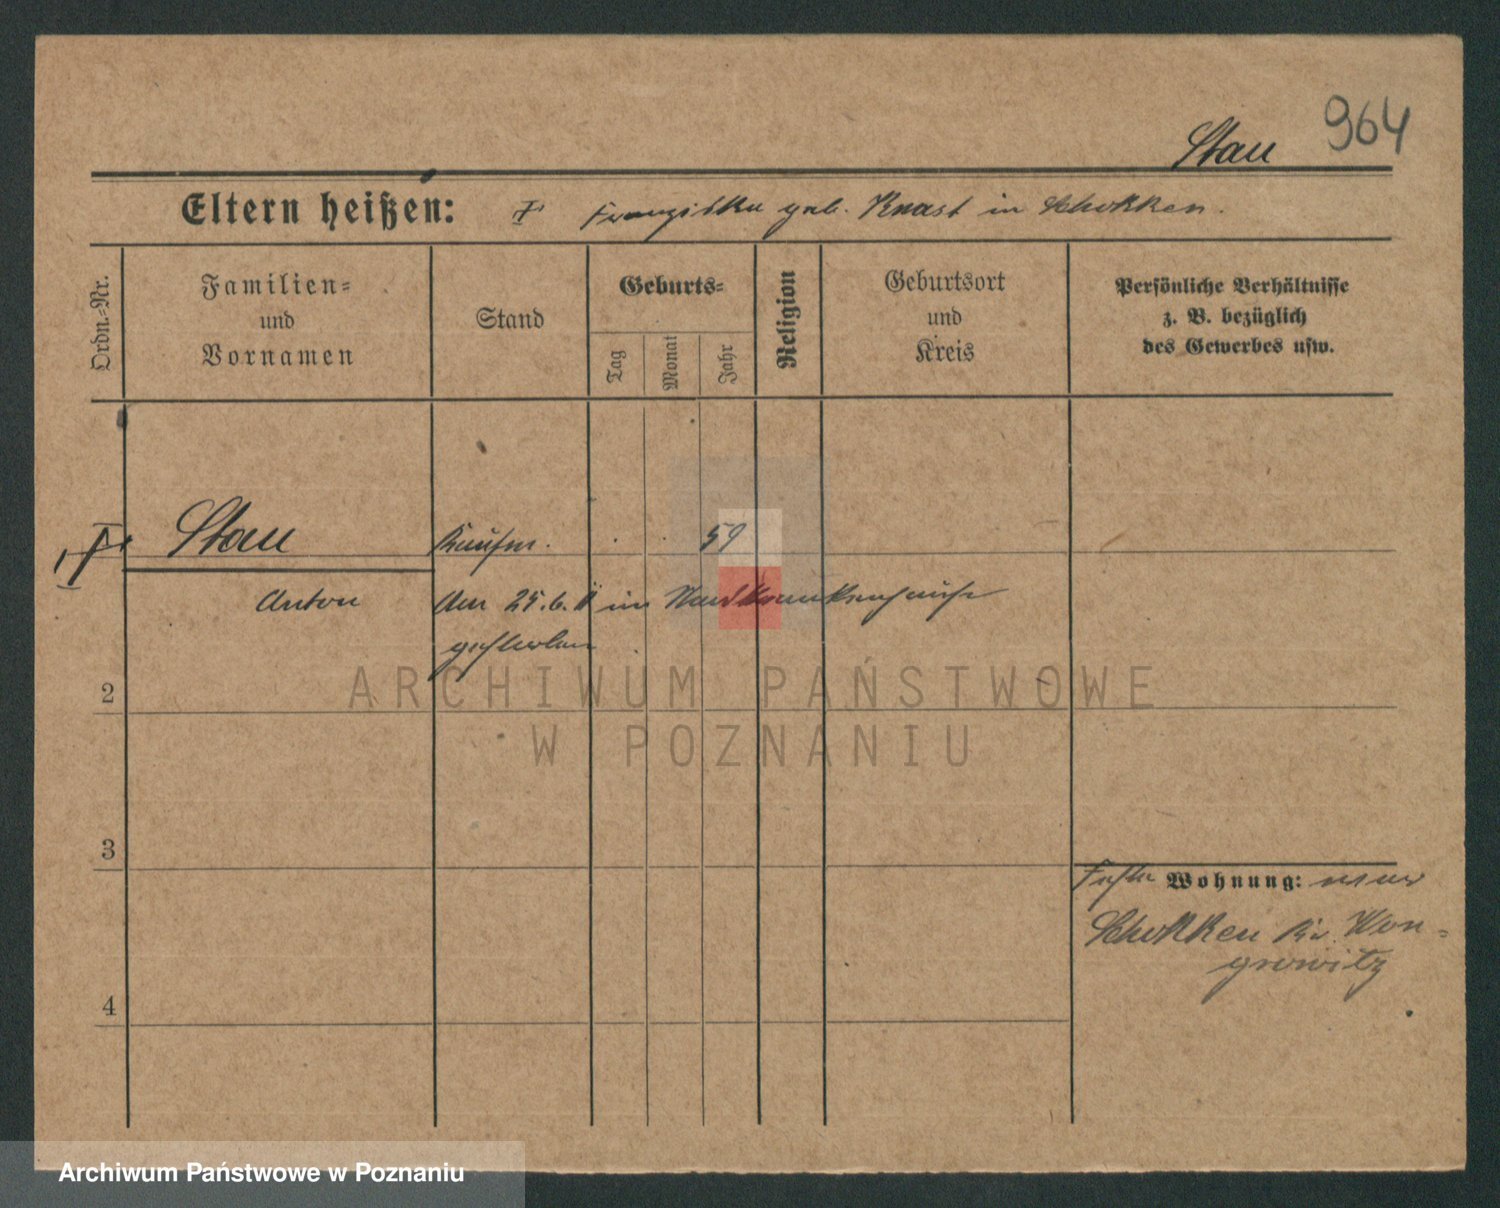 964
Stau
Eltern heißen: Franziska geb. Knast in Schokken.
Ordn.-Nr.
Familien-
und
Vornamen
Stand
Geburts-
Tag
Monat
Jahr
Religion
Geburtsort
und
Kreis
Persönliche Verhältnisse
z. B. bezüglich
des Gewerbes usw.
Stau Kaufm. 59
Anton Am 25.6. im Stadtkrankenhause
gestorben
ARCHIWUM PAŃSTWOWE
W POZNANIU
2
3
4
Wohnung: war
Schokken Kr. Won-
growitz
Archiwum Państwowe w Poznaniu